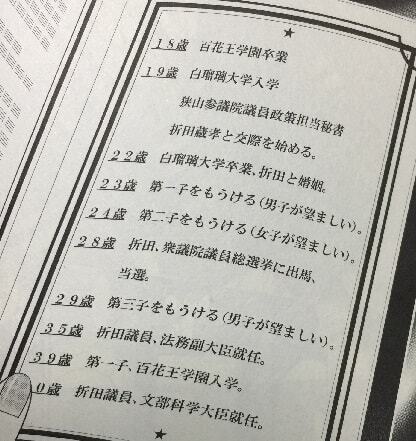 18歳 百花王学園卒業
19歳 白瑠璃大学入学
狭山参議院議員政策担当秘書
折田歳孝と交際を始める。
22歳 白瑠璃大学卒業、折田と婚姻。
23歳 第一子をもうける(男子が望ましい)。
24歳 第二子をもうける(女子が望ましい)。
28歳 折田、衆議院議員総選挙に出馬、
当選。
29歳 第三子をもうける(男子が望ましい)。
35歳 折田議員、法務副大臣就任。
39歳 第一子、百花王学園入学。
0歳 折田議員、文部科学大臣就任。